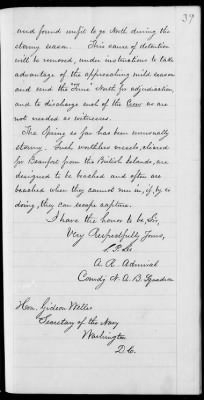 39
and found unfit to go North during the
stormy season. This cause of detention
will be removed, under instructions to take
advantage of the approaching mild season
and send the "Time" North for adjudication,
and to discharge such of the Crew as are
not needed as witnesses.
The Spring so far has been unusually
stormy. Such worthless vessels, cleared
for Beaufort from the British Islands, are
designed to be beached and often are
beached when they cannot run in, if, by so
doing, they can escape capture.
I have the honor to be, Sir,
Very Respectfully Yours,
S. P. Lee
A. R. Admiral
Comdg N. A. B. Squadron
Hon. Gideon Welles
Secretary of the Navy
Washington
D.C.